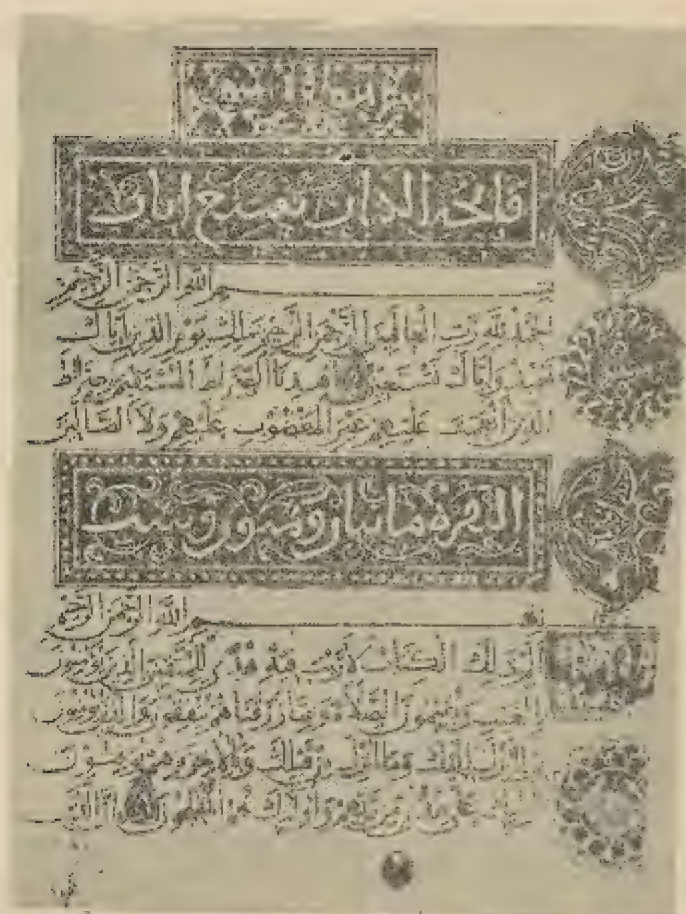 فاتحة الكتاب سبع ايات
بسم الله الرحمن الرحيم
الحمد لله رب العالمين الرحمن الرحيم ملك يوم الدين اياك
نعبد واياك نستعين اهدنا الصراط المستقيم صراط
الذين أنعمت عليهم غير المغضوب عليهم ولا الضالين
البقرة مايتان وثمنون وست
بسم الله الرحمن الرحيم
الم ذلك الكتاب لا ريب فيه هدى للمتقين الذين يؤمنون
بالغيب ويقيمون الصلاة ومما رزقناهم ينفقون والذين يؤمنون
بما انزل اليك وما انزل من قبلك وبالاخرة هم يوقنون
اولئك على هدى من ربهم واولئك هم المفلحون ان الذين